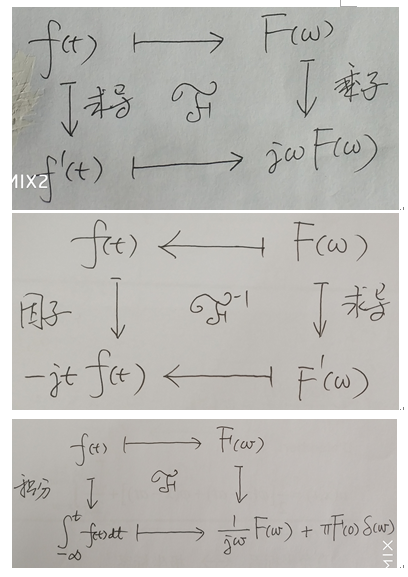 f(t) ⟼ F(ω)
求导 𝓕 乘子
f'(t) ⟼ jω F(ω)
MIX2
f(t) ⟻ F(ω)
因子 𝓕⁻¹ 求导
-jt f(t) ⟻ F'(ω)
f(t) ⟼ F(ω)
积分 𝓕
∫_{-∞}^{t} f(t)dt ⟼ 1/jω F(ω) + πF(0)δ(ω)
MIX